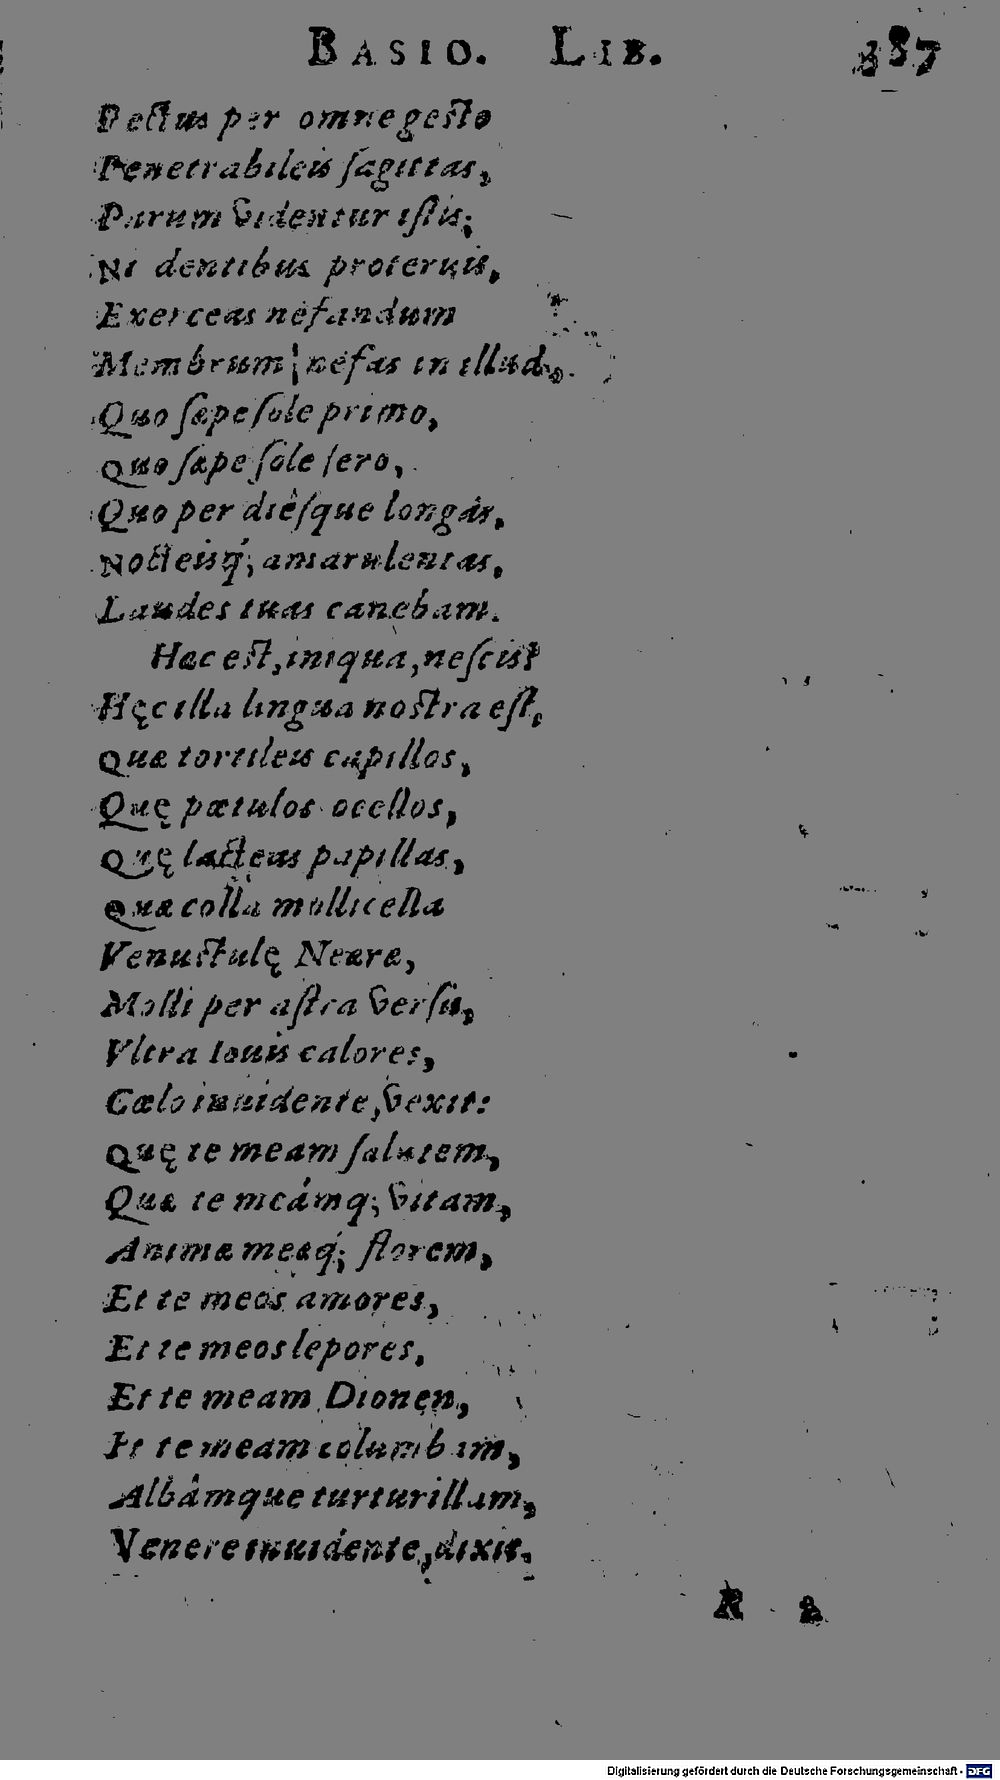 BASIO. LIB. 387
Pectus per omne gesto
Penetrabileis ſagittas,
Parum videntur iſtis;
Ni dentibus proteruis,
Exerceas nefandum
Membrum, nefas in illud,
Quo ſæpe ſole primo,
Quo ſæpe ſole ſero,
Quo per diêſque longâs,
Nocteisq́; amarulentas,
Laudes tuas canebam.
Hæc est, iniqua, neſcis?
Hęc illa lingua nostra eſt,
Quæ tortileis capillos,
Quę pætulos ocellos,
Quę lacteas papillas,
Quæ colla mollicella
Venustulę Neæræ,
Molli per aſtra verſu,
Vltra Iouis calores,
Cœlo inuidente, vexit:
Quę te meam ſalutem,
Quæ te meámq; vitam,
Animæ meæq́; florem,
Et te meos amores,
Et te meos lepores,
Et te meam Dionen,
Et te meam columbam,
Albámque turturillam,
Venere inuidente, dixit.
R 2
Digitalisierung gefördert durch die Deutsche Forschungsgemeinschaft - DFG